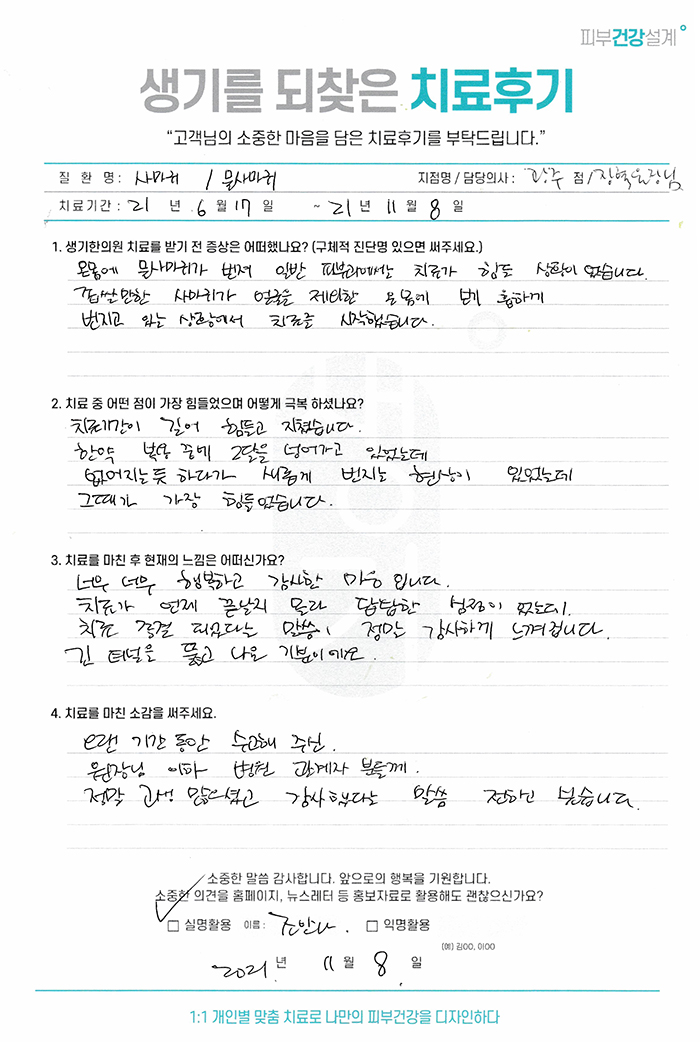 피부건강설계
생기를 되찾은 치료후기
“고객님의 소중한 마음을 담은 치료후기를 부탁드립니다.”
질 환 명 : 사마귀 / 물사마귀 지점명 / 담당의사 : 광주 점 / 장혁 원장님
치료기간 : 21 년 6 월 17 일 ~ 21 년 11 월 8 일
1. 생기한의원 치료를 받기 전 증상은 어떠했나요? (구체적 진단명 있으면 써주세요.)
온몸에 물사마귀가 번져 일반 피부과에서는 치료가 힘든 상황이 었습니다.
좁쌀만한 사마귀가 얼굴을 제외한 온몸에 보기 흉하게
번지고 있는 상황에서 치료를 시작했습니다.
2. 치료 중 어떤 점이 가장 힘들었으며 어떻게 극복 하셨나요?
치료기간이 길어 힘들고 지쳤습니다.
한약 복용 중에 2달을 넘어가고 있었는데
없어지는듯 하다가 새롭게 번지는 현상이 있었는데
그때가 가장 힘들었습니다.
3. 치료를 마친 후 현재의 느낌은 어떠신가요?
너무 너무 행복하고 감사한 마음 입니다.
치료가 언제 끝날지 몰라 답답한 심정이 었는데.
치료 종결 되었다는 말씀이 정말 감사하게 느껴집니다.
긴 터널을 뚫고 나온 기분이에요.
4. 치료를 마친 소감을 써주세요.
오랜 기간동안 수고해 주신.
원장님 이하 병원 관계자 분들께.
정말 고생 많으셨고 감사하다는 말씀 전하고 싶습니다.
소중한 말씀 감사합니다. 앞으로의 행복을 기원합니다.
소중한 의견을 홈페이지, 뉴스레터 등 홍보자료로 활용해도 괜찮으신가요?
실명활용 이름 : 익명활용
(예) 김OO, 이OO
2021 년 11 월 8 일
1:1 개인별 맞춤 치료로 나만의 피부건강을 디자인하다